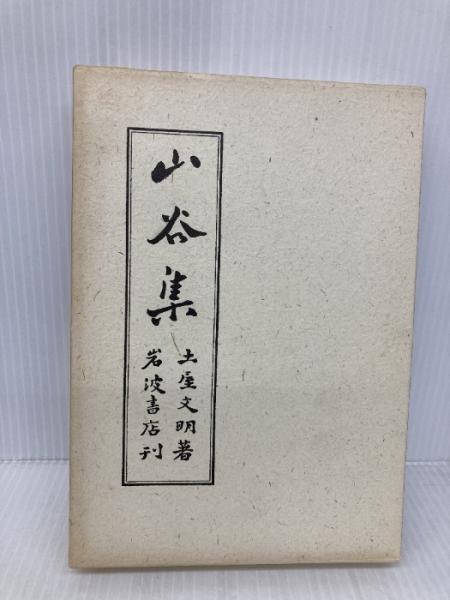 山谷集
土屋文明著
岩波書店刊